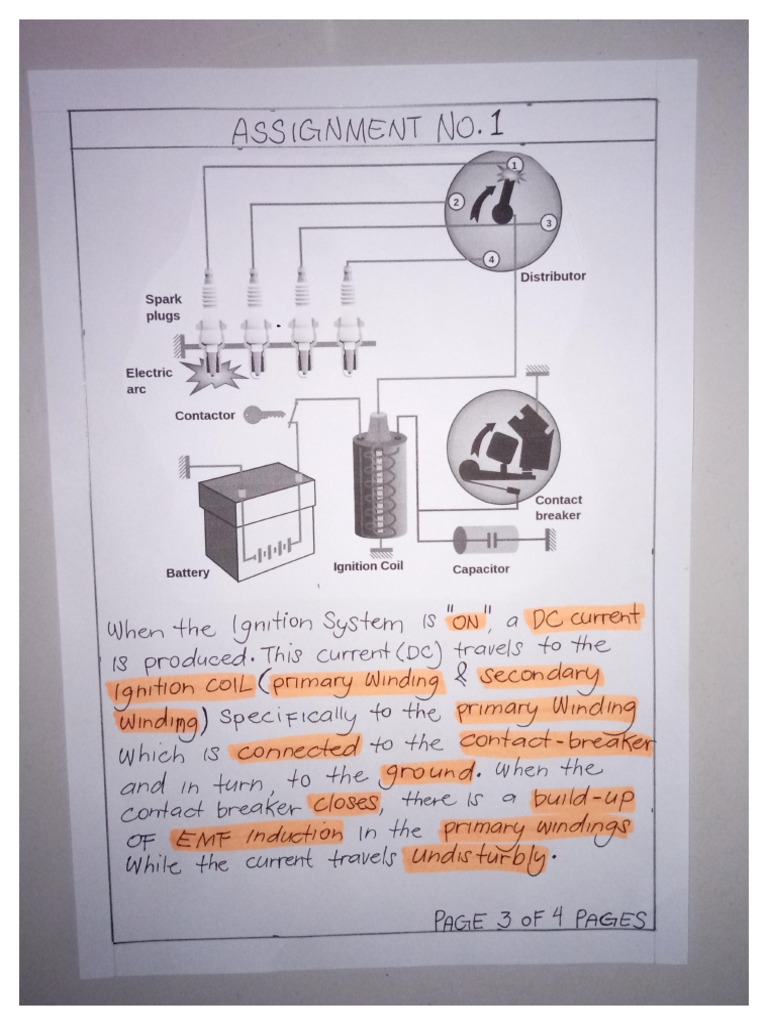 ASSIGNMENT NO.1
1
2
3
4
Distributor
Spark
plugs
Electric
arc
Contactor
Contact
breaker
Battery
Ignition Coil
Capacitor
When the Ignition System is "ON", a DC current
is produced. This current (DC) travels to the
Ignition COIL (primary Winding & secondary
Winding) Specifically to the primary Winding
which is connected to the contact-breaker
and in turn, to the ground. When the
contact breaker closes, there is a build-up
OF EMF Induction in the primary windings
While the current travels undisturbly.
PAGE 3 OF 4 PAGES